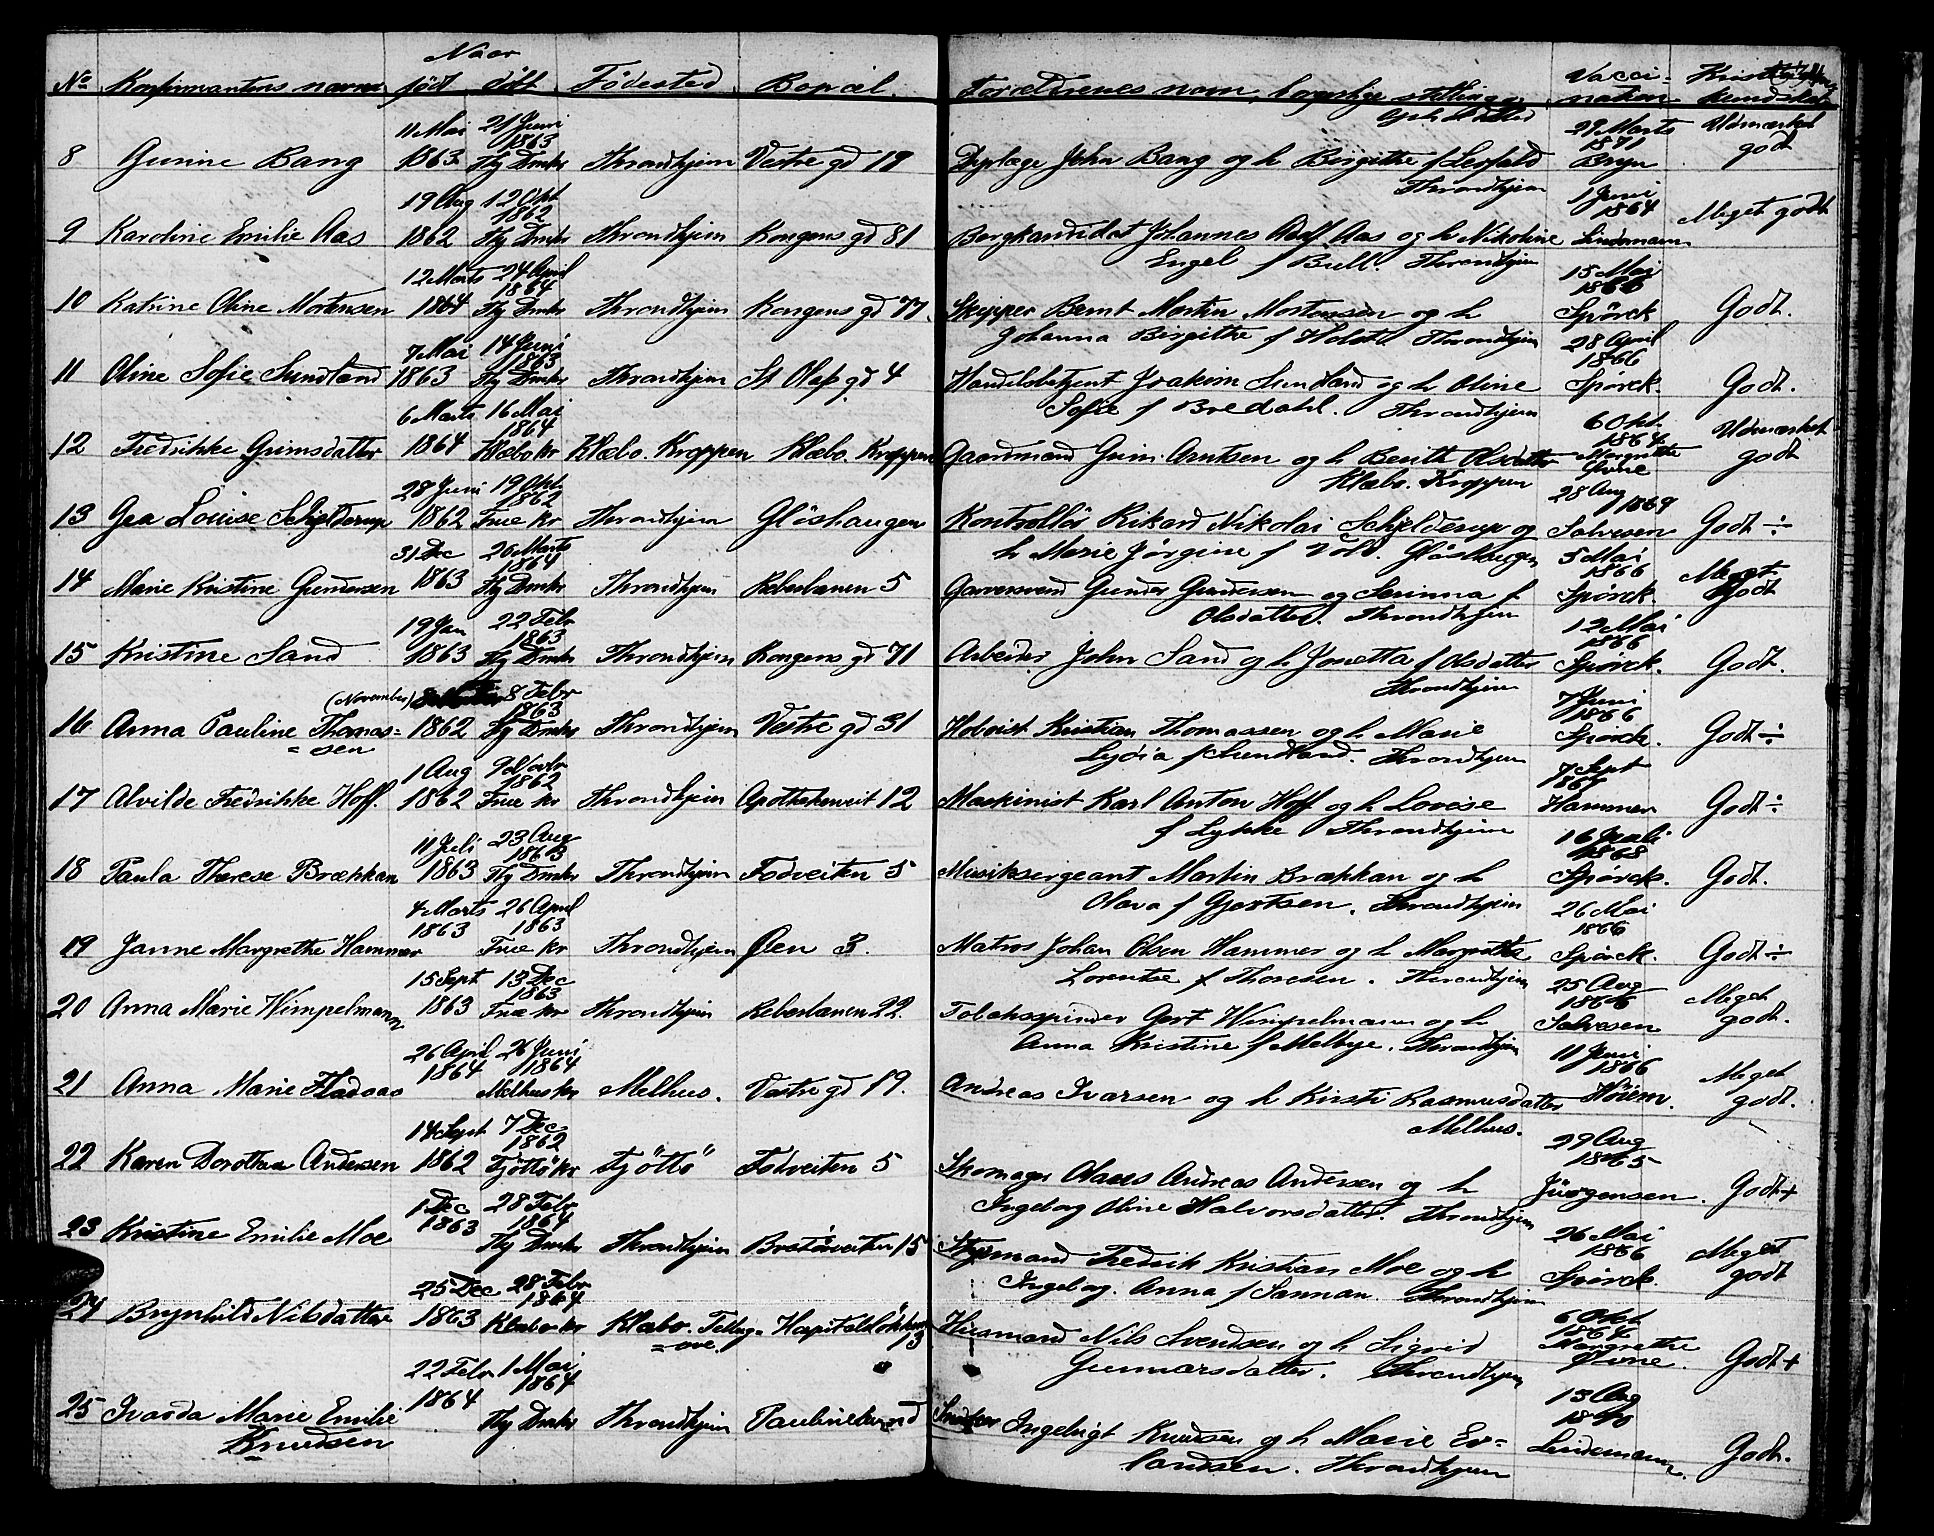 No Konfirmantens navn Naar født døbt Fødested Bopæl. Forældrenes navn, borgerlige stilling og Vaccination Kristendomskundskab
8 Gurine Bang 11 Mai 1863 21 Juni 1863 Throndhjem Vestre gd 19 John Bang og h Birgithe f Leofald Throndhjem 29 Marts 1871 Bryn Udmærket godt
9 Karoline Emilie Aas 19 Aug 1862 12 Okt 1862 Throndhjem Kongens gd 81 Bergkandidat Johannes Adolf Aas og h Nikoline
Engel f Bull. Throndhjem 1 Juni 1864 Lindemann Meget godt
10 Katrine Oline Mortensen 12 Marts 1864 24 April 1864 Throndhjem Kongens gd 77. Skipper Bernt Martin Mortensen og h
Johanna Birgithe f Holst Throndhjem 15 Mai 1866 Spörck Godt.
11 Oline Sofie Sundland 7 Mai 1863 14 Juni 1863 Throndhjem St Olafs gd 4 Handelsbetjent Joakim Sundland og h Oline
Sofie f Bredahl. Throndhjem 28 April 1866 Spörck. Godt.
12 Fredrikke Grimsdatter 6 Marts 1864 16 Mai 1864 Klæbo kr Klæbo. Kroppen Klæbo. Kroppen Gaardmand Grim Arntsen og h Beritt Olsdatter
Klæbo. Kroppen 6 Okt 1864 Margrethe Udmærket godt
13 Gea Louise Schjelderup 28 Juni 1862 19 Okt 1862 Frue kr Throndhjem Glöshaugen Kontrollör Rikard Nikolai Schjelderup og
h Marie Jörgine f Vold. 28 Aug 1869 Salvesen Godt ÷
14 Marie Kristine Gundersen 31 Dec 1863 26 Marts 1864 Throndhjem Reberbanen 5 Garversvend Gunder Gundersen og Serinna f
Olsdatter. Throndhjem 5 Mai 1866 Spörck. Meget Godt
15 Kristine Sand 19 Jan 1863 22 Febr 1863 Throndhjem Kongens gd 71 Arbeider John Sand og h Jonetta f Olsdatter
Throndhjem 12 Mai 1866 Spörck. Godt.
16 Anna Pauline Thomas=
=sen (November) 1862 8 Febr 1863 Throndhjem Vestre gd 31 Kristian Thomassen og h Marie
Lydia f Sundland. Throndhjem 7 Juni 1866 Spörck. Godt ÷
17 Alvilde Fredrikke Hoff. 1 Aug 1862 9 Novbr 1862 Frue kr Throndhjem Apothekerveit 12 Maskinist Karl Anton Hoff og h Lovise
f Lykke Throndhjem 7 Sept Hammer Godt ÷
18 Paula Therese Brækkan 11 Juli 1863 23 Aug 1863 Throndhjem Fodveiten 5 Musiksergeant Martin Brækkan og h
Olava f Gjertsen. Throndhjem 16 Juli 1868 Spörck. Godt.
19 Janne Margrethe Hammer 4 Marts 1863 26 April 1863 Frue kr Throndhjem Øen 3. Matros Johan Olsen Hammer og h Margrethe
Lorentse f Thoresen. Throndhjem 26 Mai 1866 Spörck. Godt ÷
20 Anna Marie Wimpelmann 15 Sept 1863 13 Dec 1863 Frue kr Throndhjem Reberbanen 22. Tobakspinder Gert Wimpelmann og h
Anna Kristine f Melbye. Throndhjem 25 Aug 1866 Salvesen Meget godt.
21 Anna Marie Fladaas 26 April 1864 26 Juni 1864 Melhus kr Melhus. Vestre gd 19. Andreas Ivarsen og h Kirsti Rasmusdatter
Melhus. 11 Juni 1866 Höiem. Meget godt.
22 Karen Dorothea Andersen 14 Sept 1862 7 Dec 1862 Tjöttö kr Tjöttö Fodveiten 5 Skomager Claus Andreas Andersen og h
Ingeborg Oline Halvorsdatter. Throndhjem 29 Aug 1865 Jürgensen. Godt +
23 Kristine Emilie Moe 1 Dec 1863 28 Febr 1864 Throndhjem Bratörveiten 15 Styrmand Fredrik Kristian Moe og h
Ingeborg. Anna f Sannan. Throndhjem 26 Mai 1866 Spörck. Meget godt
24 Brynhild Nilsdatter 25 Dec 1863 28 Febr 1864 Klæbo kr Klæbo. 13 Husmand Nils Svendsen og h Sigrid
Gunnarsdatter. Throndhjem 6 Okt 1864 Margrethe Godt +
25 Ivarda Marie Emilie
Knudsen 22 Febr 1864 1 Mai 1864 Throndhjem Paulinelund Snedker Ingebrigt Knudsen og h Marie
Throndhjem 13 Aug Lindemann. Godt.